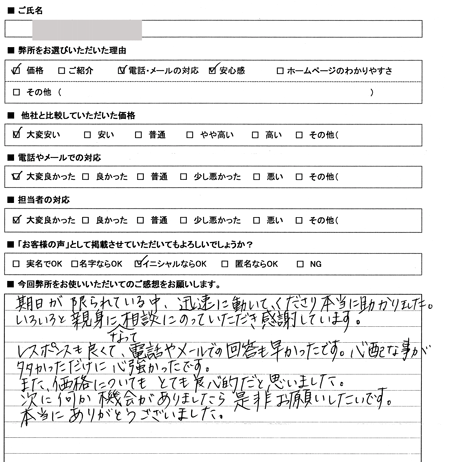 ■ ご氏名
■ 弊所をお選びいただいた理由
☑ 価格 □ ご紹介 ☑ 電話・メールの対応 ☑ 安心感 □ ホームページのわかりやすさ
□ その他 ( )
■ 他社と比較していただいた価格
☑ 大変安い □ 安い □ 普通 □ やや高い □ 高い □ その他(
■ 電話やメールでの対応
☑ 大変良かった □ 良かった □ 普通 □ 少し悪かった □ 悪い □ その他(
■ 担当者の対応
☑ 大変良かった □ 良かった □ 普通 □ 少し悪かった □ 悪い □ その他(
■ 「お客様の声」として掲載させていただいてもよろしいでしょうか?
□ 実名でOK □ 名字ならOK ☑ イニシャルならOK □ 匿名ならOK □ NG
■ 今回弊所をお使いいただいてのご感想をお願いします。
期日が限られている中、迅速に動いてくださり本当に助かりました。
いろいろと親身になって相談にのっていただき感謝しています。
レスポンスも良くて、電話やメールでの回答も早かったです。心配な事が
多かっただけに心強かったです。
また、価格についてもとても良心的だと思いました。
次に何か機会がありましたら是非お願いしたいです。
本当にありがとうございました。